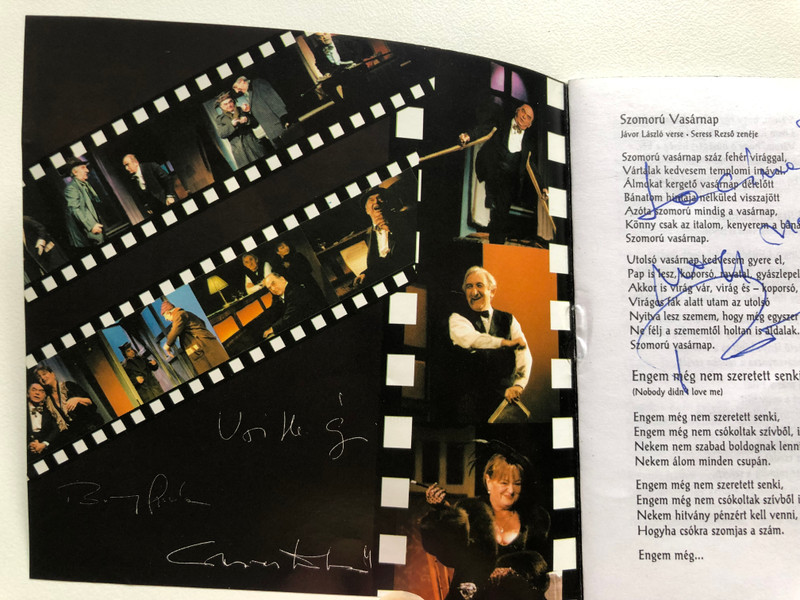 Szomorú Vasárnap
Jávor László verse • Seress Rezső zenéje
Szomorú vasárnap száz fehér virággal,
Vártalak kedvesem templomi imával.
Álmokat kergető vasárnap délelőtt
Bánatom hintaja nélküled visszajött
Azóta szomorú mindig a vasárnap,
Könny csak az italom, kenyerem a
Szomorú vasárnap.
Utolsó vasárnap kedvesem gyere el,
Pap is lesz, koporsó, ravatal, gyászlepel
Akkor is virág vár, virág és – koporsó,
Virágos fák alatt utam az utolsó
Nyitva lesz szemem, hogy még egyszer
Ne félj a szememtől holtan is áldalak.
Szomorú vasárnap.
Engem még nem szeretett senki
(Nobody didn't love me)
Engem még nem szeretett senki,
Engem még nem csókoltak szívből, i
Nekem nem szabad boldognak lenni
Nekem álom minden csupán.
Engem még nem szeretett senki,
Engem még nem csókoltak szívből i
Nekem hitvány pénzért kell venni,
Hogyha csókra szomjas a szám.
Engem még...